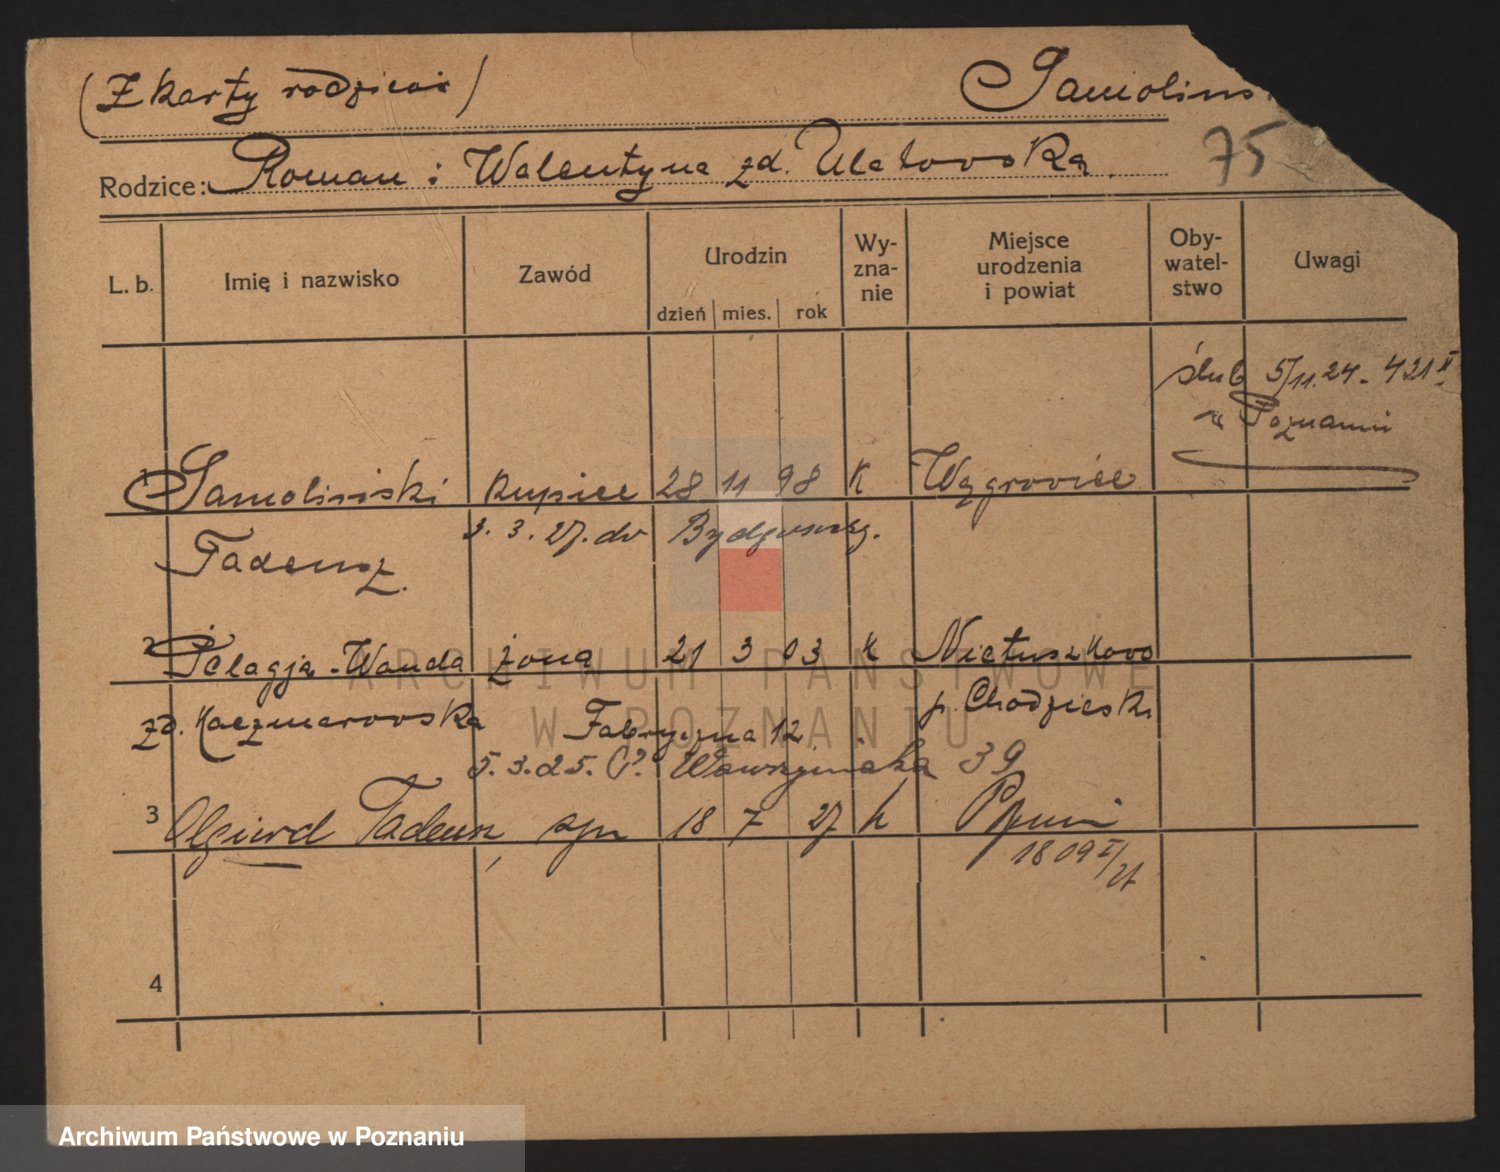 (Z karty rodziców)
Samolińs
Rodzice: Roman i Walentyna zd. Ulatowska.
75
L. b.
Imię i nazwisko
Zawód
Urodzin
dzień mies. rok
Wy-
zna-
nie
Miejsce
urodzenia
i powiat
Oby-
watel-
stwo
Uwagi
ślub 5/11.24 - 421 II
w Poznaniu
1 Samoliński kupiec 28 11 98 K Wągrowiec
3. 3. 27. do Bydgoszczy.
Tadeusz.
2 Pelagja - Wanda żona 21 3 03 K Nietuszkowo
zd. Kaczmarowska Fabryczna 12 p. Chodzieski
5. 3. 25. Wawrzyniaka 39
3 Olgierd Tadeusz, syn 18 7 27 k
1809 I/27
4
ARCHIWUM PAŃSTWOWE
W POZNANIU
Archiwum Państwowe w Poznaniu